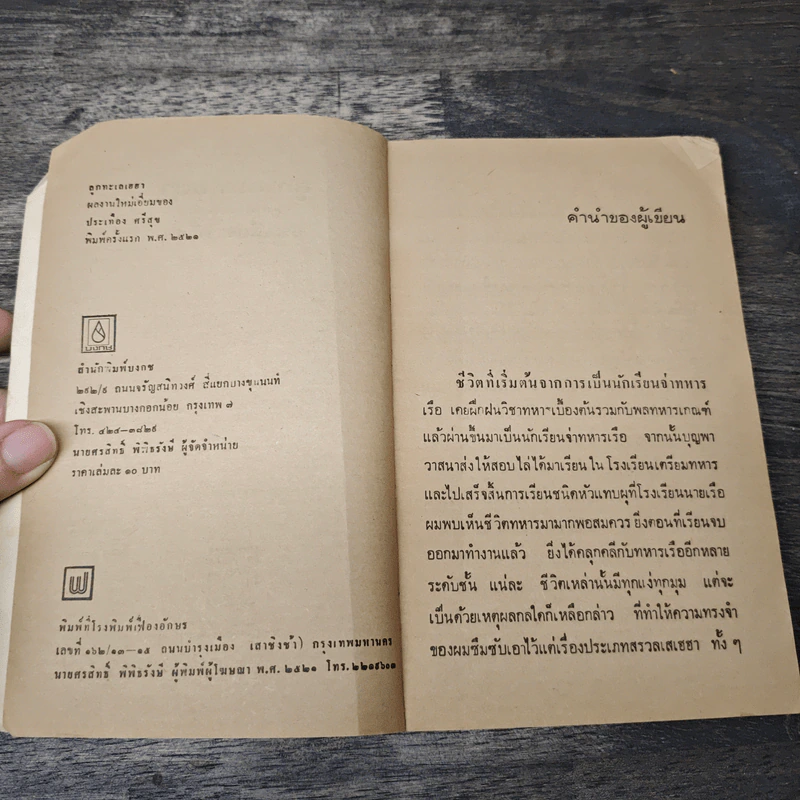 ลูกทะเลเฮฮา
ผลงานใหม่เอี่ยมของ
ประเทือง ศรีสุข
พิมพ์ครั้งแรก พ.ศ. ๒๕๒๑
บงกช
สำนักพิมพ์บงกช
๒๙๒/๙ ถนนจรัญสนิทวงศ์ สี่แยกบางขุนนนท์
เชิงสะพานบางกอกน้อย กรุงเทพ ๗
โทร. ๔๒๔–๓๘๒๙
นายศรสิทธิ์ พิพิธรังษี ผู้จัดจำหน่าย
ราคาเล่มละ ๑๐ บาท
พิมพ์ที่โรงพิมพ์เฟื่องอักษร
เลขที่ ๑๖๒/๑๓–๑๕ ถนนบำรุงเมือง เสาชิงช้า) กรุงเทพมหานคร
นายศรสิทธิ์ พิพิธรังษี ผู้พิมพ์ผู้โฆษณา พ.ศ. ๒๕๒๑ โทร. ๒๒๑๙๖๐๑
คำนำของผู้เขียน
ชีวิตที่เริ่มต้นจากการเป็นนักเรียนจ่าทหาร
เรือ เคยฝึกฝนวิชาทหารเบื้องต้นรวมกับพลทหารเกณฑ์
แล้วผ่านขึ้นมาเป็นนักเรียนจ่าทหารเรือ จากนั้นบุญพา
วาสนาส่งให้สอบไล่ได้มาเรียนในโรงเรียนเตรียมทหาร
และไปเสร็จสิ้นการเรียนชนิดหัวแทบผุที่โรงเรียนนายเรือ
ผมพบเห็นชีวิตทหารมามากพอสมควร ยิ่งตอนที่เรียนจบ
ออกมาทำงานแล้ว ยิ่งได้คลุกคลีกับทหารเรืออีกหลาย
ระดับชั้น แน่ละ ชีวิตเหล่านั้นมีทุกแง่ทุกมุม แต่จะ
เป็นด้วยเหตุผลกลใดก็เหลือกล่าว ที่ทำให้ความทรงจำ
ของผมซึมซับเอาไว้แต่เรื่องประเภทสรวลเสเฮฮา ทั้ง ๆ